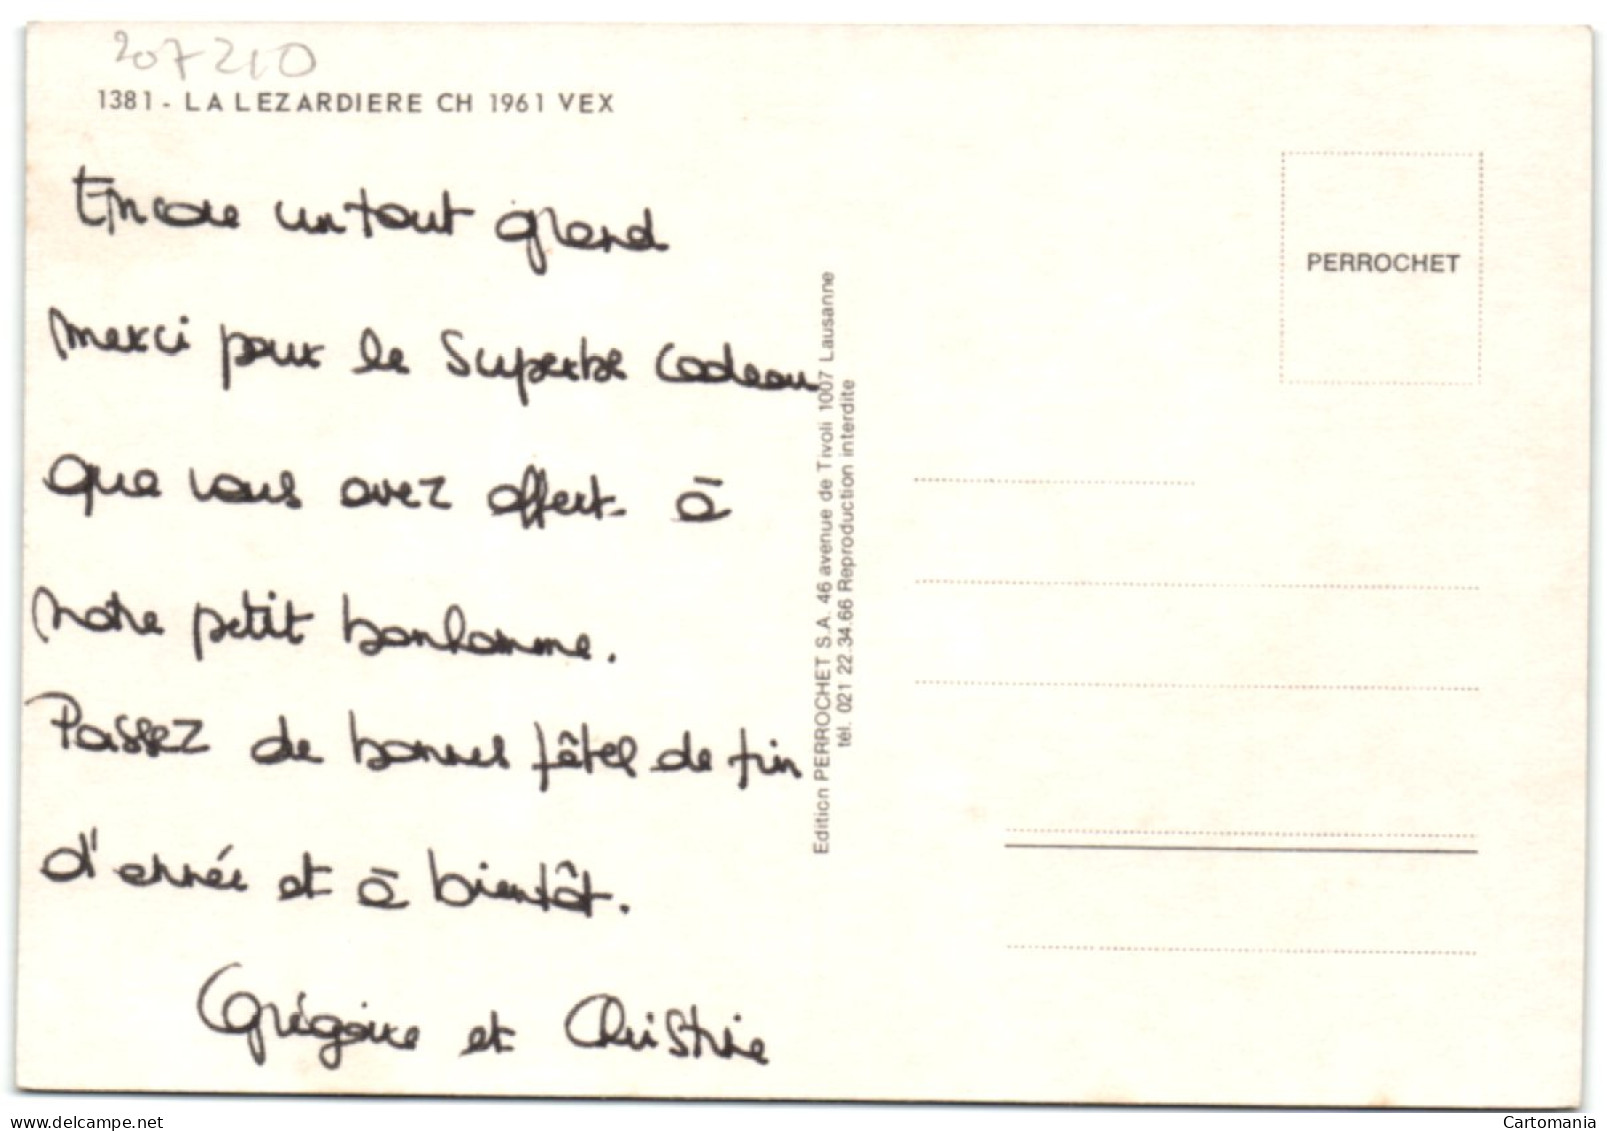 207210
1381 - LA LEZARDIERE CH 1961 VEX
Encore un tout grand
merci pour le superbe cadeau
que vous avez offert à
notre petit bonhomme.
Passez de bonnes fêtes de fin
d'année et à bientôt.
Grégoire et Christine
Edition PERROCHET S.A. 46 avenue de Tivoli 1007 Lausanne
tél. 021 22.34.66 Reproduction interdite
PERROCHET
Cartomania